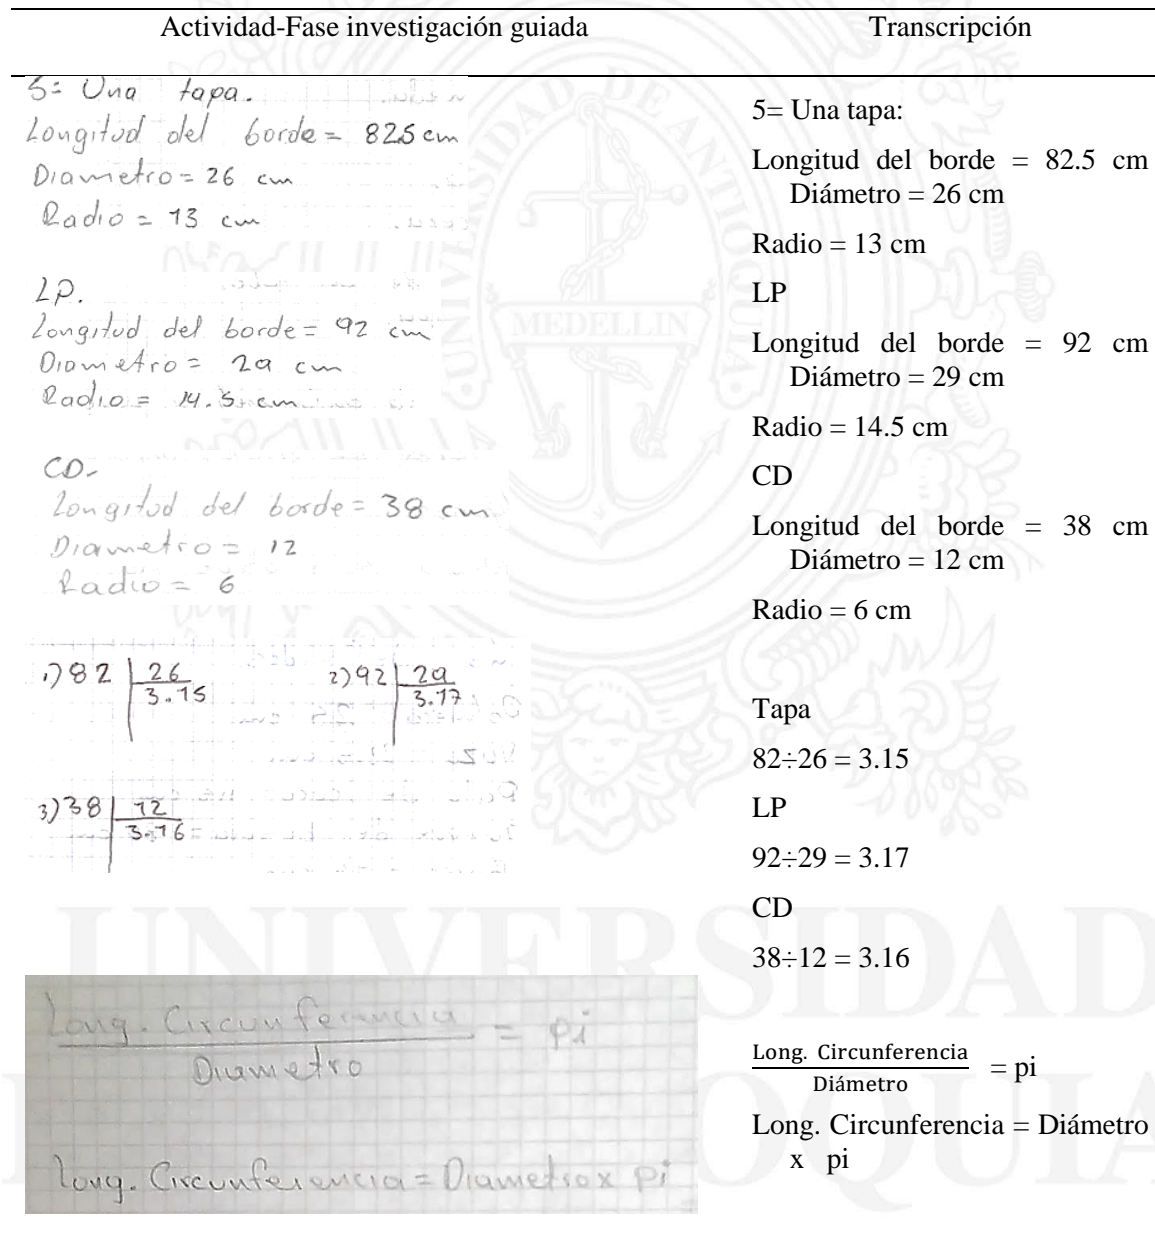 Actividad-Fase investigación guiada
Transcripción
5= Una tapa.
Longitud del borde = 82.5 cm
Diametro = 26 cm
Radio = 13 cm
LP.
Longitud del borde = 92 cm
Diametro = 29 cm
Radio = 14.5 cm
CD-
Longitud del borde = 38 cm
Diametro = 12
Radio = 6
1) 82 26
3.15
2) 92 29
3.17
3) 38 12
3.16
Long. Circunferencia = pi
Diametro
Long. Circunferencia = Diametro x pi
5= Una tapa:
Longitud del borde = 82.5 cm
Diámetro = 26 cm
Radio = 13 cm
LP
Longitud del borde = 92 cm
Diámetro = 29 cm
Radio = 14.5 cm
CD
Longitud del borde = 38 cm
Diámetro = 12 cm
Radio = 6 cm
Tapa
82÷26 = 3.15
LP
92÷29 = 3.17
CD
38÷12 = 3.16
Long. Circunferencia = pi
Diámetro
Long. Circunferencia = Diámetro
x pi
UNIVERSIDAD DE ANTIOQUIA
MEDELLIN
UNIVERSIDAD